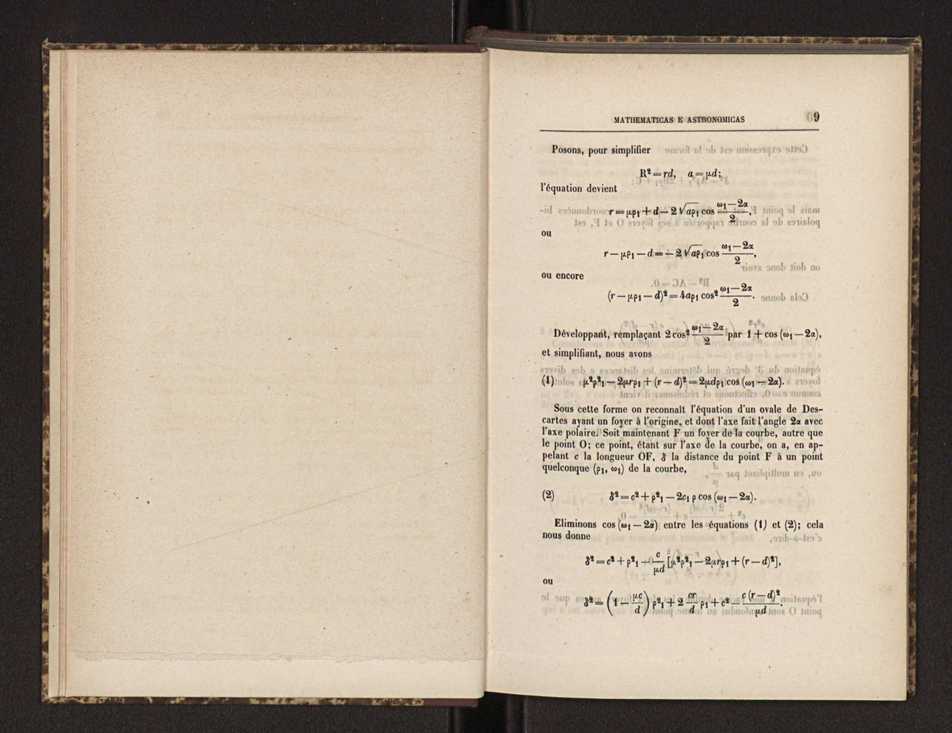 MATHEMATICAS E ASTRONOMICAS 9
Posons, pour simplifier
R² = rd, a = μd;
l'équation devient
r = μρ₁ + d − 2 √aρ₁ cos (ω₁ − 2α)/2,
ou
r − μρ₁ − d = − 2 √aρ₁ cos (ω₁ − 2α)/2,
ou encore
(r − μρ₁ − d)² = 4aρ₁ cos² (ω₁ − 2α)/2.
Développant, remplaçant 2 cos² (ω₁ − 2α)/2 par 1 + cos (ω₁ − 2α),
et simplifiant, nous avons
(1) μ²ρ²₁ − 2μrρ₁ + (r − d)² = 2μdρ₁ cos (ω₁ − 2α).
Sous cette forme on reconnaît l'équation d'un ovale de Des-
cartes ayant un foyer à l'origine, et dont l'axe fait l'angle 2α avec
l'axe polaire. Soit maintenant F un foyer de la courbe, autre que
le point O; ce point, étant sur l'axe de la courbe, on a, en ap-
pelant c la longueur OF, δ la distance du point F à un point
quelconque (ρ₁, ω₁) de la courbe,
(2) δ² = c² + ρ²₁ − 2c₁ ρ cos (ω₁ − 2α).
Eliminons cos (ω₁ − 2α) entre les équations (1) et (2); cela
nous donne
δ² = c² + ρ²₁ − c/μd [μ²ρ²₁ − 2μrρ₁ + (r − d)²],
ou
δ² = (1 − μc/d) ρ²₁ + 2 cr/d ρ₁ + c² − c (r − d)²/μd.